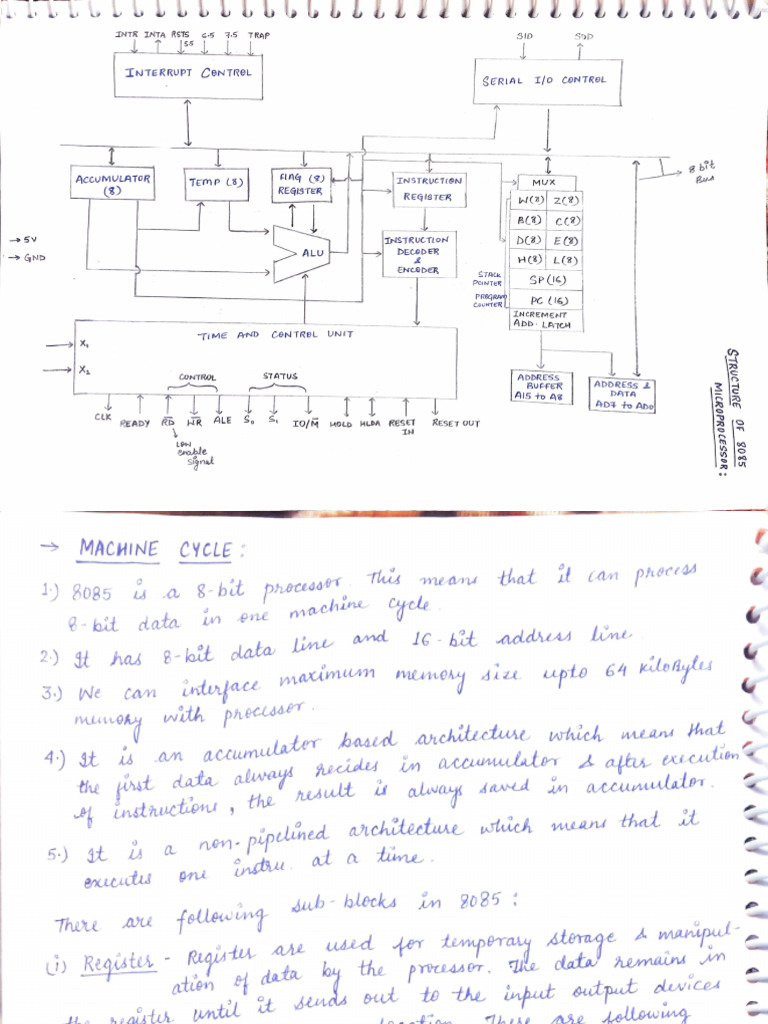 INTR INTA RST5 6.5 7.5 TRAP
5.5
SID SOD
INTERRUPT CONTROL
SERIAL I/O CONTROL
8 bit
Bus
ACCUMULATOR
(8)
TEMP (8)
FlAG (8)
REGISTER
INSTRUCTION
REGISTER
MUX
W(8) Z(8)
B(8) C(8)
D(8) E(8)
H(8) L(8)
SP(16)
PC (16)
INCREMENT
ADD. LATCH
STACK
POINTER
PROGRAM
COUNTER
→ 5V
→ GND
ALU
INSTRUCTION
DECODER
&
ENCODER
TIME AND CONTROL UNIT
X1
X2
CONTROL STATUS
CLK READY RD WR ALE S0 S1 IO/M HOLD HLDA RESET IN RESET OUT
LOW
enable
signal
ADDRESS
BUFFER
A15 to A8
ADDRESS &
DATA
AD7 to AD0
STRUCTURE OF 8085
MICROPROCESSOR:
→ MACHINE CYCLE:
1.) 8085 is a 8-bit processor. This means that it can process
8-bit data in one machine cycle.
2.) It has 8-bit data line and 16-bit address line.
3.) We can interface maximum memory size upto 64 kiloBytes
memory with processor.
4.) It is an accumulator based architecture which means that
the first data always recides in accumulator & after execution
of instructions, the result is always saved in accumulator.
5.) It is a non-pipelined architecture which means that it
executes one instru. at a time.
There are following sub-blocks in 8085:
(i) Register - Register are used for temporary storage & manipul-
ation of data by the processor. The data remains in
the register until it sends out to the input output devices
There are following